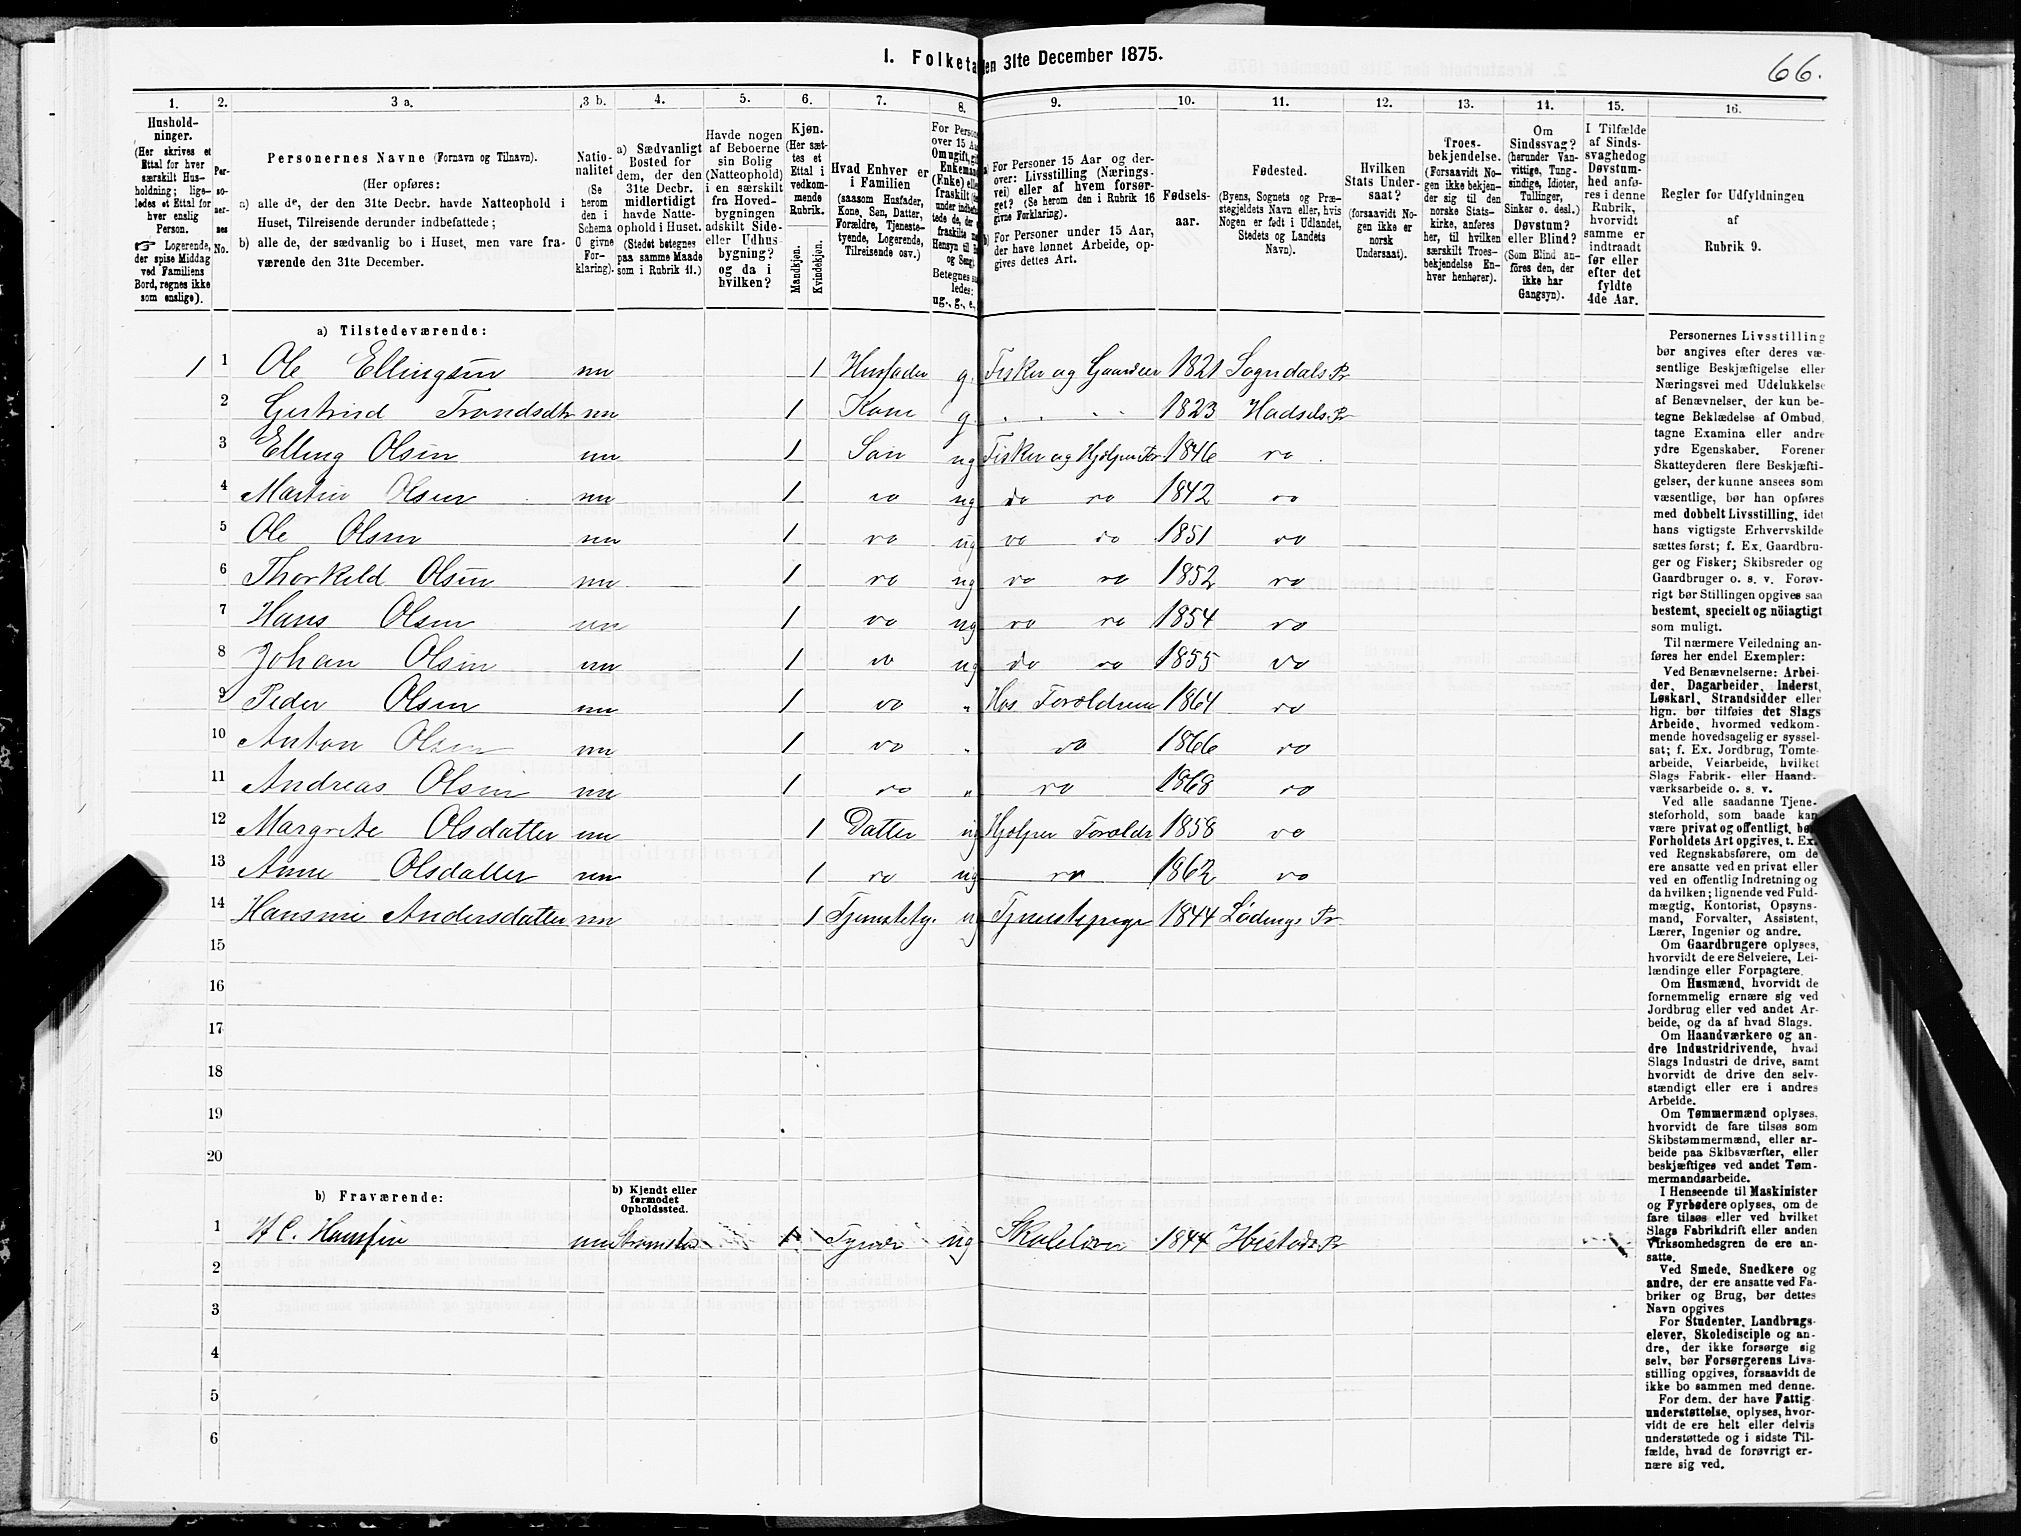 I. Folketa en 31te December 1875.
66.
1. 2. 3 a. 3 b. 4. 5. 6. 7. 8. 9. 10. 11. 12. 13. 14. 15. 16.
Husholdninger. (Her skrives et Ettal for hver særskilt Husholdning; ligeledes et Ettal for hver enslig Person. ☞ Logerende, der spise Middag ved Familiens Bord, regnes ikke som enslige).
Personernes No.
Personernes Navne (Fornavn og Tilnavn).
(Her opføres:
a) alle de, der den 31te Decbr. havde Natteophold i Huset, Tilreisende derunder indbefattede;
b) alle de, der sædvanlig bo i Huset, men vare fraværende den 31te December.
Nationalitet (Se herom den i Schema O givne Forklaring).
a) Sædvanligt Bosted for dem, der den 31te Decbr. midlertidigt havde Natteophold i Huset. (Stedet betegnes paa samme Maade som i Rubrik 11.)
Havde nogen af Beboerne sin Bolig (Natteophold) i en særskilt fra Hovedbygningen adskilt Side- eller Udhusbygning? og da i hvilken?
Kjøn. (Her sættes et Ettal i vedkommende Rubrik.
Mandkjøn. Kvindekjøn.
Hvad Enhver er i Familien (saasom Husfader, Kone, Søn, Datter, Forældre, Tjenestetyende, Logerende, Tilreisende osv.)
a) For Personer 15 Aar og derover: Livsstilling (Næringsvei) eller af hvem forsørget? (Se herom den i Rubrik 16 givne Forklaring).
b) For Personer under 15 Aar, der have lønnet Arbeide, opgives dettes Art.
Fødselsaar.
Fødested. (Byens, Sognets og Præstegjeldets Navn eller, hvis Nogen er født i Udlandet, Stedets og Landets Navn).
Hvilken Stats Undersaat? (forsaavidt Nogen ikke er norsk Undersaat).
Troesbekjendelse. (Forsaavidt Nogen ikke bekjender sig til den norske Statskirke, anføres her, til hvilken særskilt Troesbekjendelse Enhver henhører).
Om Sindssvag? (herunder Vanvittige, Tungsindige, Idioter, Tullinger, Sinker o. desl.) Døvstum? eller Blind? (Som Blind anføres den, der ikke har Gangsyn).
I Tilfælde af Sindssvaghedog Døvstumhed anføres i denne Rubrik, hvorvidt samme er indtraadt før eller efter det fyldte 4de Aar.
Regler for Udfyldningen af Rubrik 9.
a) Tilstedeværende:
1 1 Ole Ellingsen nn 1 Husfader g. Fisker og Gaardeier 1821 Sogndals Pr
2 Gertrud Trondsdtr nn 1 Kone g 1823 Hadsels Pr
3 Elling Olsen nn 1 Søn ug Fisker og Hjælper For 1846 do
4 Martin Olsen nn 1 do ug do do 1842 do
5 Ole Olsen nn 1 do ug do do 1851 do
6 Thorkild Olsen nn 1 do ug do do 1852 do
7 Hans Olsen nn 1 do ug do do 1854 do
8 Johan Olsen nn 1 do ug do do 1855 do
9 Peder Olsen nn 1 do " Hos Forældrene 1864 do
10 Anton Olsen nn 1 do " do 1866 do
11 Andreas Olsen nn 1 do " do 1868 do
12 Margrete Olsdatter nn 1 Datter ug Hjælper Forældr 1858 do
13 Anne Olsdatter nn 1 do ug do 1862 do
14 Hansine Andersdatter nn 1 Tjenestety. ug Tjenestepige 1844 Lødings Pr
15
16
17
18
19
20
b) Fraværende:
b) Kjendt eller formodet Opholdssted.
1 H C. Hansen nn 1 ug Skolelærer 1844 Pr
2
3
4
5
6
Personernes Livsstilling
bør angives efter deres væ-
sentlige Beskjæftigelse eller
Næringsvei med Udelukkelse
af Benævnelser, der kun be-
tegne Beklædelse af Ombud,
tagne Examina eller andre
ydre Egenskaber. Forener
Skatteyderen flere Beskjæfti-
gelser, der kunne ansees som
væsentlige, bør han opføres
med dobbelt Livsstilling, idet
hans vigtigste Erhvervskilde
sættes først; f. Ex. Gaardbru-
ger og Fisker; Skibsreder og
Gaardbruger o. s. v. Forøv-
rigt bør Stillingen opgives saa
bestemt, specielt og nöiagtigt
som muligt.
Til nærmere Veiledning an-
føres her endel Exempler:
Ved Benævnelserne: Arbei-
der, Dagarbeider, Inderst,
Løskarl, Strandsidder eller
lign. bør tilføies det Slags
Arbeide, hvormed vedkom-
mende hovedsagelig er syssel-
sat; f. Ex. Jordbrug, Tomte-
arbeide, Veiarbeide, hvilket
Slags Fabrik- eller Haand-
værksarbeide o. s. v.
Ved alle saadanne Tjene-
steforhold, som baade kan
være privat og offentligt, bør
Forholdets Art opgives, t. Ex.
ved Regnskabsførere, om de
ere ansatte ved en privat eller
ved en offentlig Indretning og
da hvilken; lignende ved Fuld-
mægtig, Kontorist, Opsyns-
mand, Forvalter, Assistent,
Lærer, Ingeniør og andre.
Om Gaardbrugere oplyses,
hvorvidt de ere Selveiere, Lei-
lændinge eller Forpagtere.
Om Husmænd, hvorvidt de
fornemmelig ernære sig ved
Jordbrug eller ved andet Ar-
beide, og da af hvad Slags.
Om Haandværkere og an-
dre Industridrivende, hvad
Slags Industri de drive, samt
hvorvidt de drive den selv-
stændigt eller ere i andres
Arbeide.
Om Tømmermænd oplyses,
hvorvidt de fare tilsøs som
Skibstømmermænd, eller ar-
beide paa Skibsværfter, eller
beskjæftiges ved andet Tøm-
mermandsarbeide.
I Henseende til Maskinister
og Fyrbødere oplyses, om de
fare tilsøs eller ved hvilket
Slags Fabrikdrift eller anden
Virksomhedsgren de ere an-
satte.
Ved Smede, Snedkere og
andre, der ere ansatte ved Fa-
briker og Brug, bør dettes
Navn opgives
For Studenter, Landbrugs-
elever, Skoledisciple og an-
dre, der ikke forsørge sig
selv, bør Forsørgerens Livs-
stilling opgives, forsaavidt de
ikke bo sammen med denne.
For dem, der have Fattig-
understøttelse, oplyses, hvor-
vidt de ere helt eller delvis
understøttede og i sidste Til-
fælde, hvad de forøvrigt er-
nære sig ved.